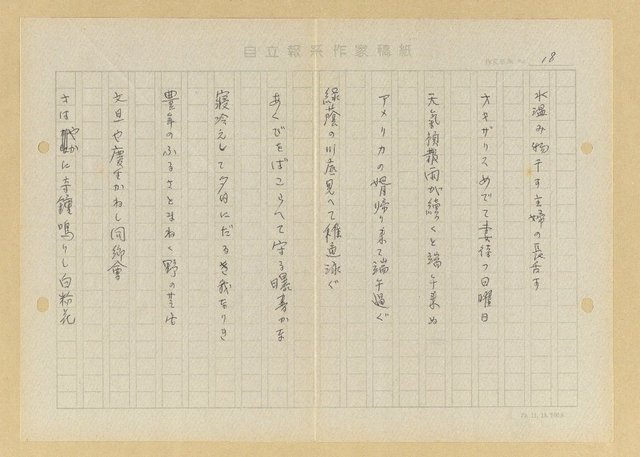 自立報系作家稿紙
18
水温み物干す主婦の長舌す
オキザリスめでて妻待つ日曜日
天気予報雨が続くと端午来ぬ
アメリカの婿帰り来て端午過ぐ
緑蔭の川底見へて稚魚泳ぐ
あくびをばこらへて守る曝書かな
寝冷えして夕日にだるき我なりき
豊年のふるさとまねく野の芒
文旦や慶をかわし同郷會
さは やかに寺鐘鳴りし白粉花